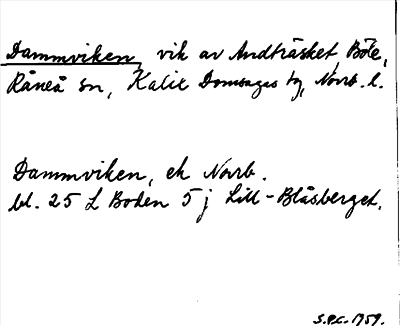 Dammviken, vik av Andträsket, Böle,
Råneå sn, Kalix Domsagas tg, Norrb. l.
Dammviken, ek Norrb.
bl. 25 L Boden 5 j Lill-Blåsberget.
S.P.C. 1959.